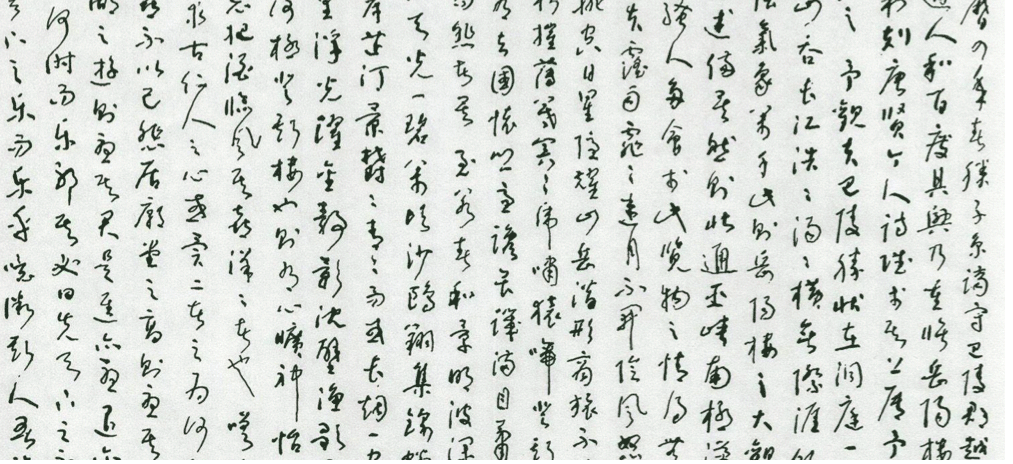 曆四年春滕子京謫守巴陵郡越
通人和百廢具興乃重修岳陽樓
制刻唐賢今人詩賦於其上屬予
之予觀夫巴陵勝狀在洞庭一
山吞長江浩々湯々橫無際涯
陰氣象萬千此則岳陽樓之大觀
述備矣然則北通巫峽南極瀟
騷人多會於此覽物之情得無
夫霪雨霏々連月不開陰風怒
排空日星隱耀山岳潛形商旅不
楫摧薄暮冥々虎嘯猿啼登斯
有去國懷鄉憂讒畏譏滿目蕭
而悲者矣至若春和景明波瀾
天光一碧萬頃沙鷗翔集錦鱗
岸芷汀蘭郁々青々而或長煙一
里浮光躍金靜影沈璧漁歌
何極登斯樓也則有心曠神怡
忘把酒臨風其喜洋々者也嗟
求古仁人之心或異二者之為何
喜不以己悲居廟堂之高則憂其
湖之遠則憂其君是進亦憂退亦
何時而樂耶其必曰先天下之憂
天下之樂而樂乎噫微斯人吾